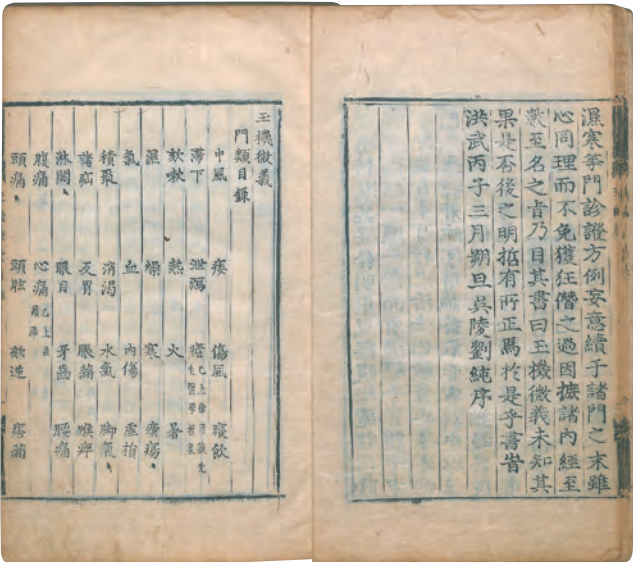 濕寒等門診證方例妄意續于諸門之末雖
心同理而不免獲狂僭之過因摭諸內經至
數至名之旨乃目其書曰玉機微義未知其
果是否後之明哲有所正焉於是乎書旹
洪武丙子三月朔旦吳陵劉純序
玉機微義
門類目錄
中風 痿 傷風 痰飲
滯下 泄瀉 瘧 已上徐
欬嗽 熱 火 暑
濕 燥 寒 瘡瘍
氣 血 內傷 虛損
積聚 消渴 水氣 脚氣
諸疝 反胃 脹滿 喉痺
淋閟 眼目 牙齒 腰痛
腹痛 心痛 已上並續添
頭痛 頭眩 欬逆 痞滿